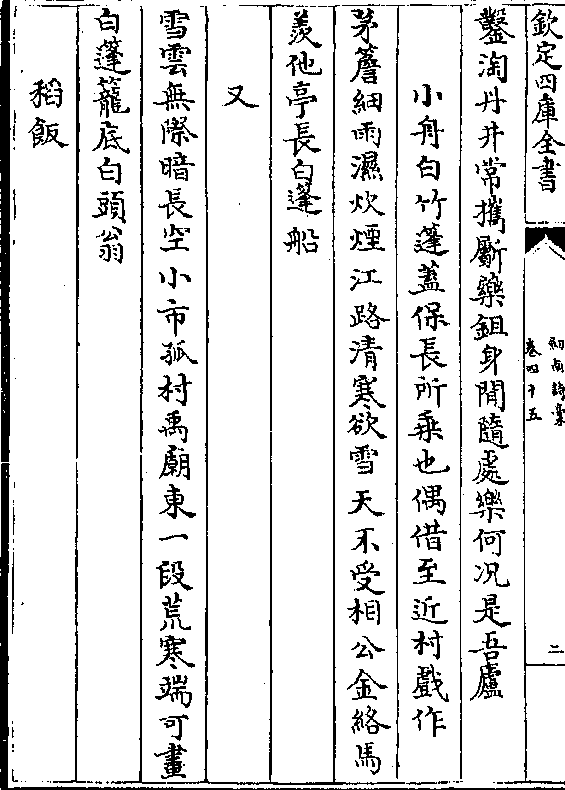 欽定四庫全書
劔南詩稾
卷四十五
二
鑿淘丹井常攜斸藥鉏身閒隨處樂何况是吾廬
小舟白竹蓬蓋保長所乗也偶借至近村戲作
茅簷細雨濕炊煙江路清寒欲雪天不受相公金絡馬
羨他亭長白蓬船
又
雪雲無際暗長空小市孤村禹廟東一段荒寒端可畫
白蓬籠底白頭翁
稻飯